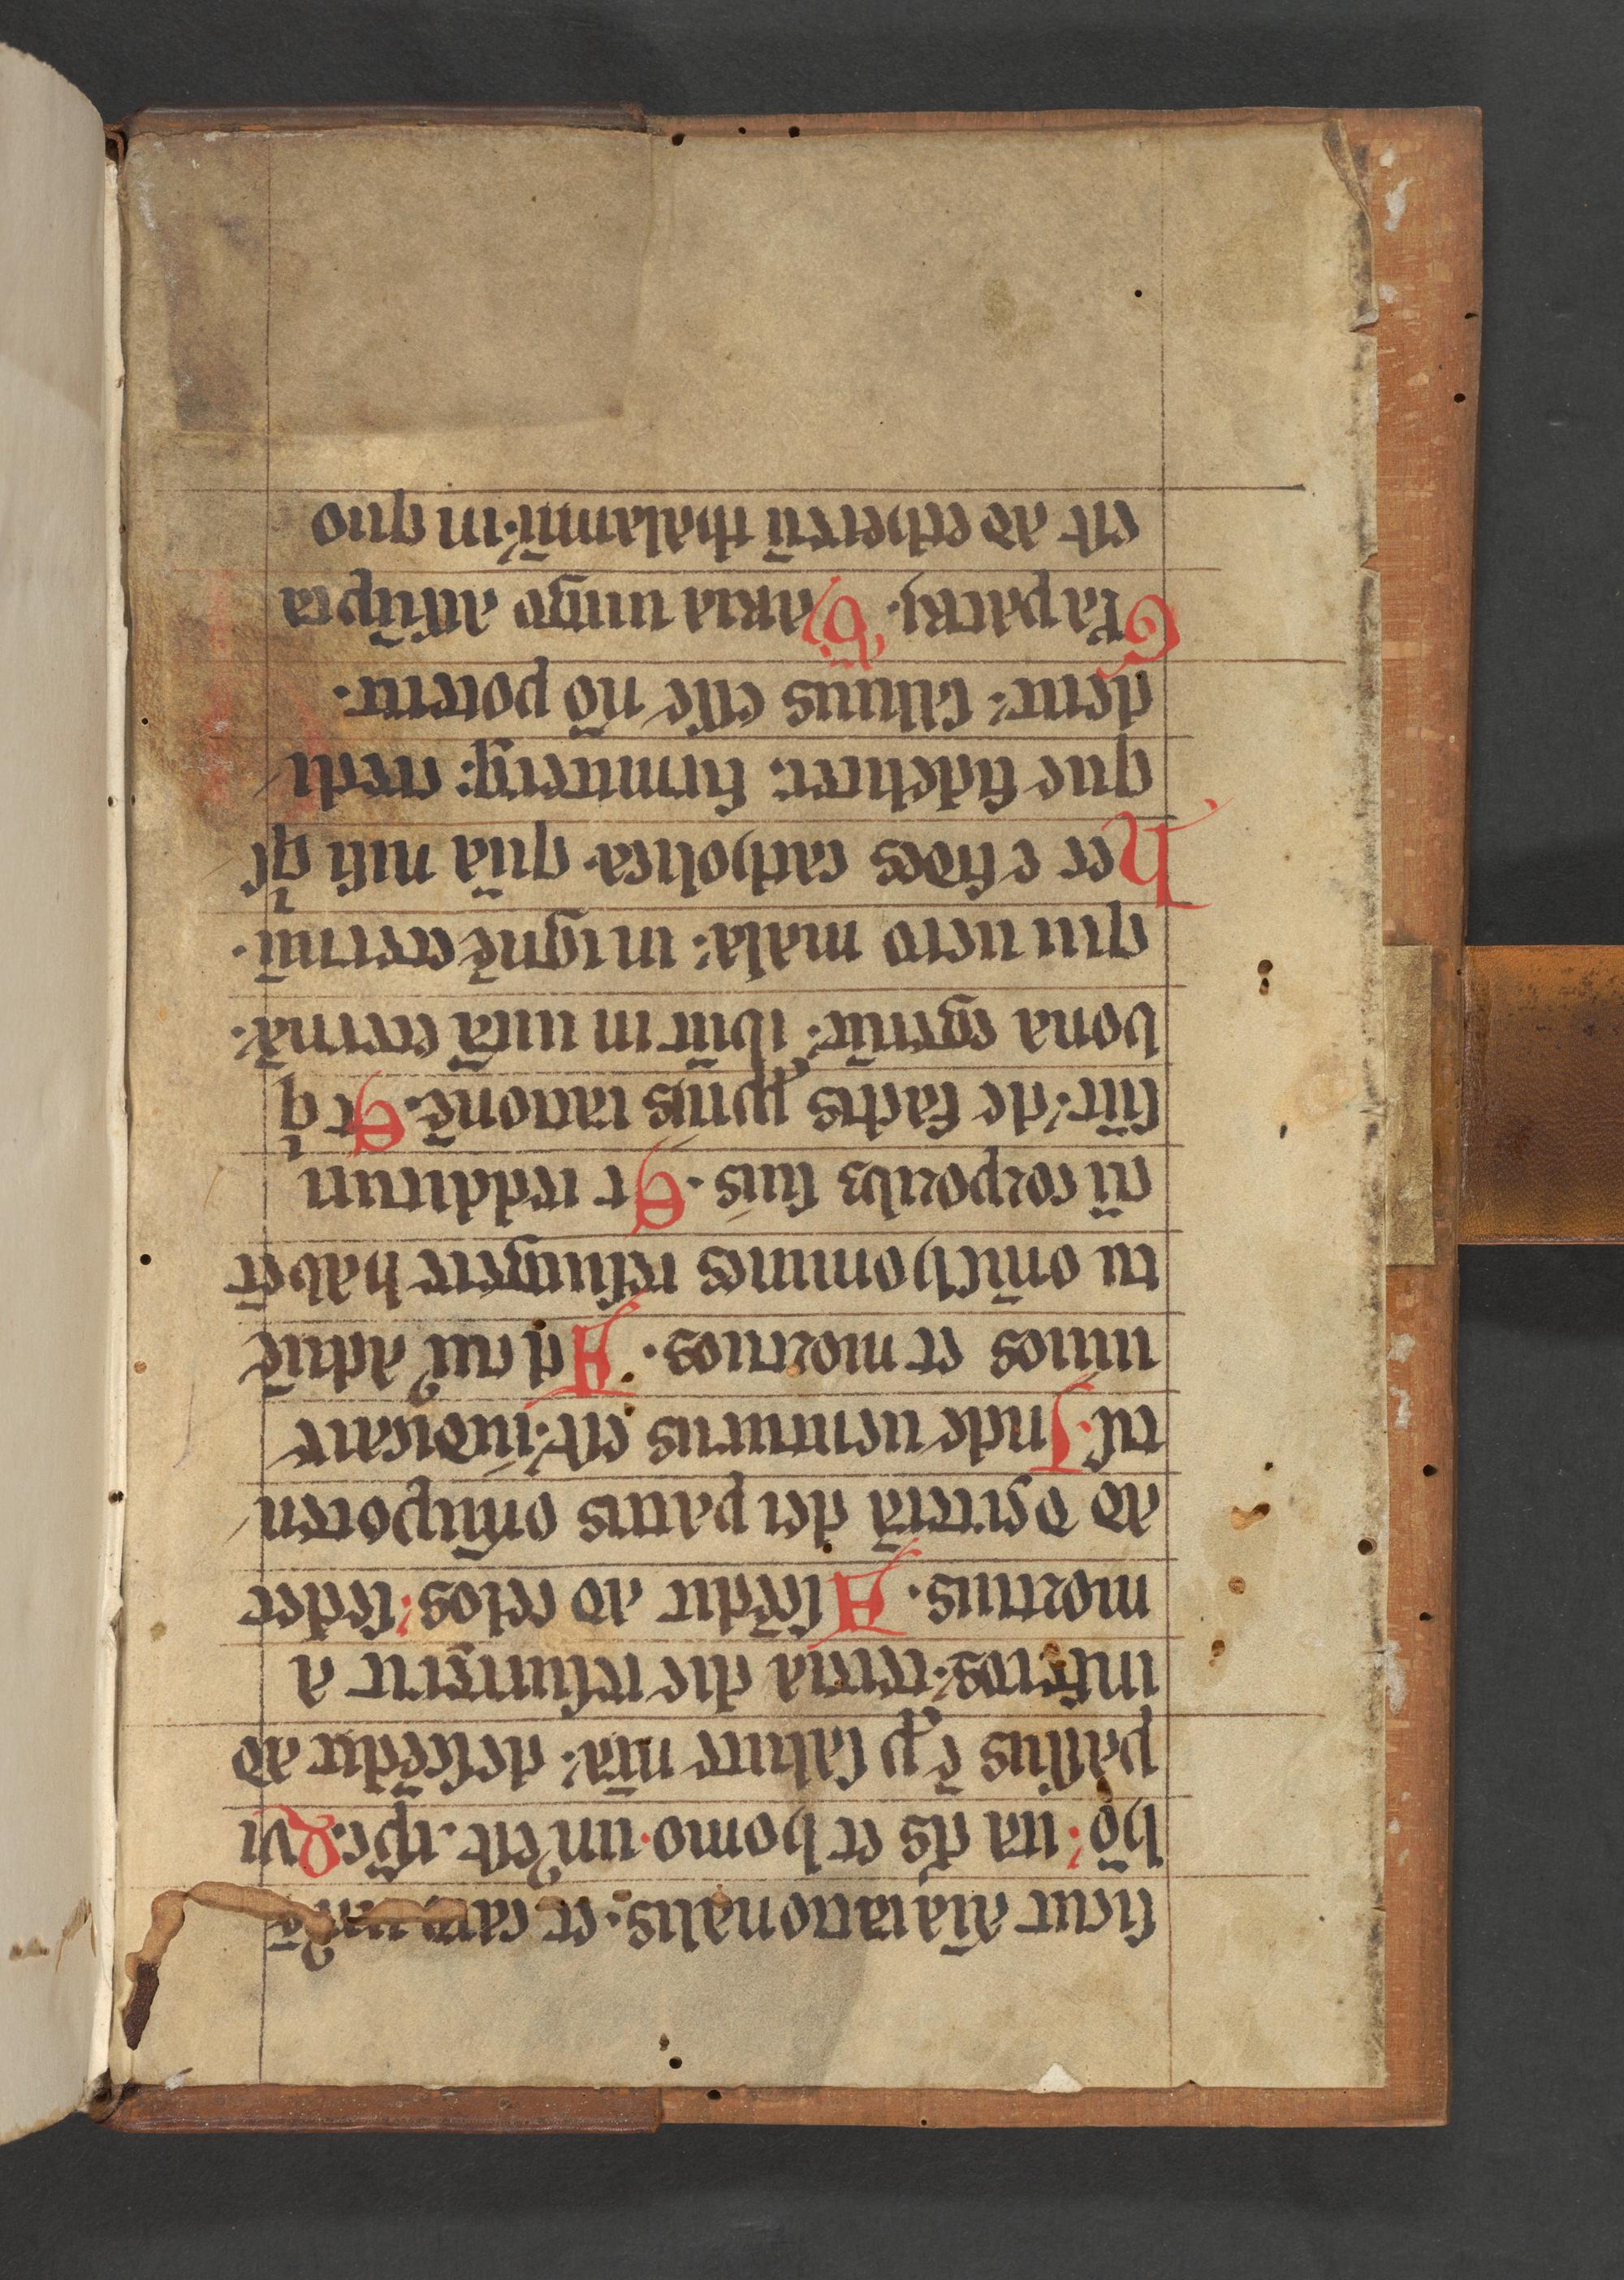 sicut aīa rationalis: et caro unꝰ ē
hō: ita ds et homo unꝰ est xp̄c. Qui
passus ē ꝓ salute nrā: descēdit ad
inferos: tercia die resurrexit a
mortuis. Ascēdit ad celos: sedet
ad dexterā dei patris om̄ipoten
tis. Inde uenturus est: iudicare
uiuos et mortuos. Ad cuiꝰ aduē
tū om̄s homines resurgere habēt
cū corporibꝫ suis. Et reddituri
sūt: de factis ꝓpriis rationē. Et qi
bona egerūt: ibūt in uitā eternā:
qui uero mala: in ignē eternū.
Hec ē fides catholica. quā nisi qis
que fideliter: firmiterqꝫ credi
derit: saluus esse nō poterit.
Glā patri. Maria uirgo assūpta
est ad ethereū thalamū. in quo